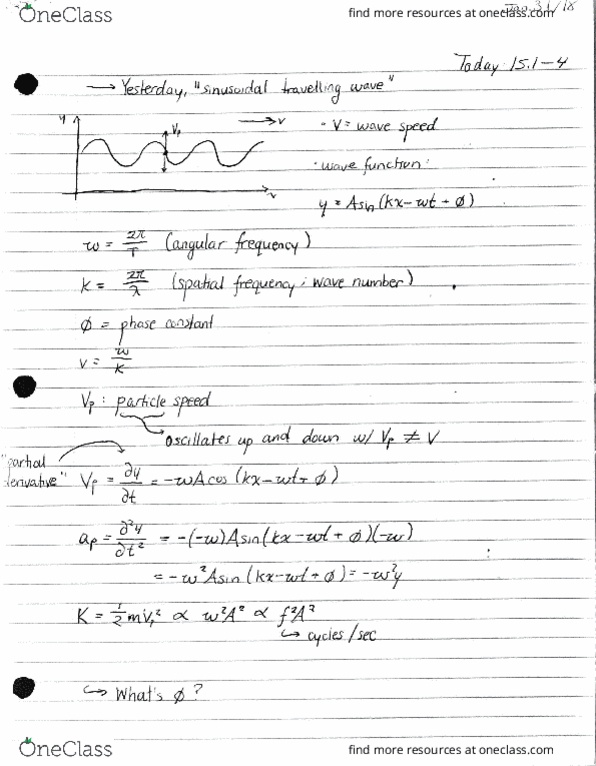 OneClass
find more resources at oneclass.com
Jan 31/18
Today 15.1-4
→ Yesterday, "sinusoidal travelling wave"
y
Vp
→ v
• V = wave speed
• wave function:
y = Asin(kx-wt+ϕ)
w = 2π/T (angular frequency)
k = 2π/λ (spatial frequency; wave number)
ϕ = phase constant
v = w/k
Vp: particle speed
↳ oscillates up and down w/ Vp ≠ V
"partial derivative"
Vp = ∂y/∂t = -wAcos(kx-wt+ϕ)
ap = ∂²y/∂t² = -(-w)Asin(kx-wt+ϕ)(-w)
= -w²Asin(kx-wt+ϕ) = -w²y
K = ½mVp² ∝ w²A² ∝ f²A²
↳ cycles/sec
↳ What's ϕ?
OneClass
find more resources at oneclass.com